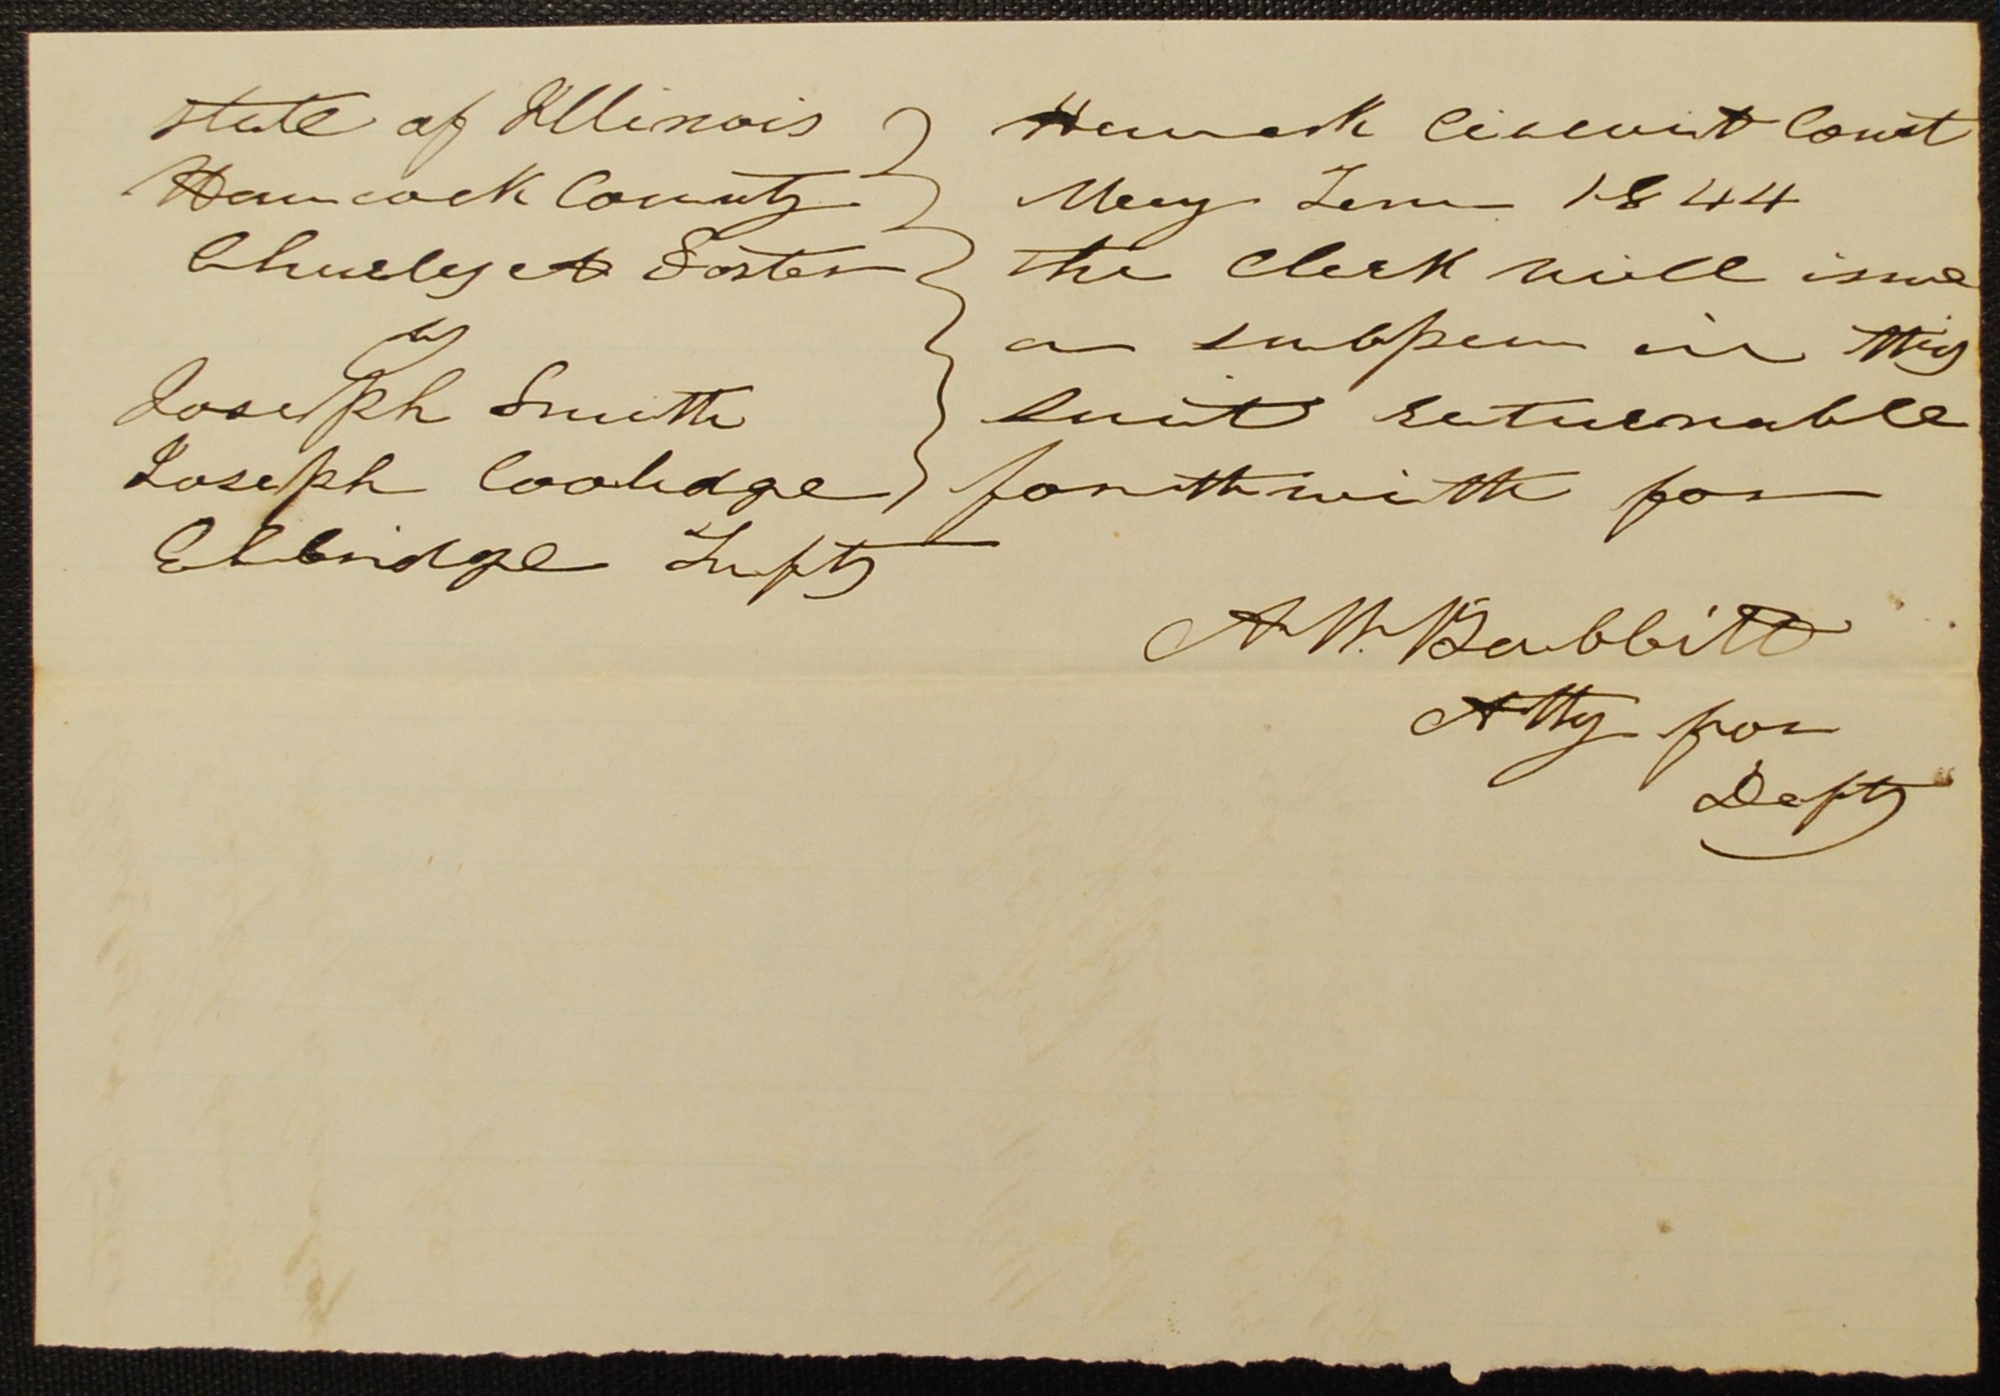 State of Illinois
Hancock County
Charles A Foster
vs
Joseph Smith
Joseph Coolidge
Elbridge Tufts
Hancok Circuit Court
May Term 1844
The Clerk will issue
a subpen in this
suit returnable
forthwith for
A. W. Babbitt
Atty for
Defts